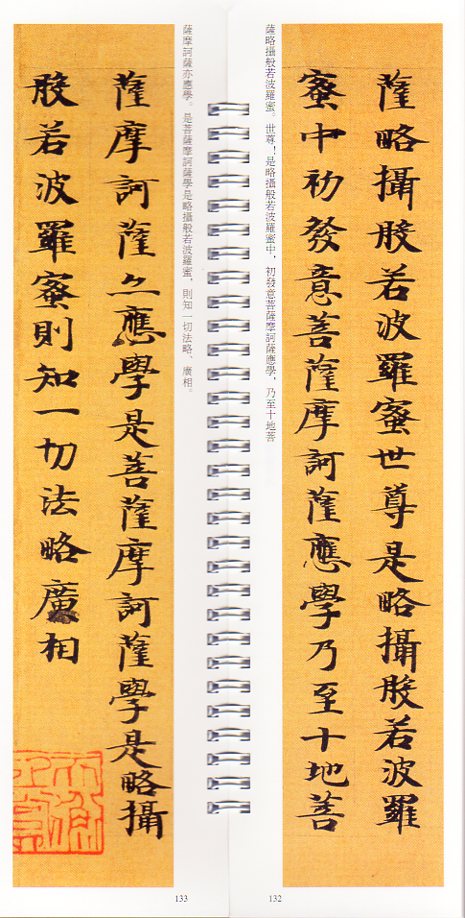 薩略攝般若波羅蜜世尊是略攝般若波羅
蜜中初發意菩薩摩訶薩應學乃至十地菩
薩略攝般若波羅蜜。世尊！是略攝般若波羅蜜中，初發意菩薩摩訶薩應學，乃至十地菩
132
薩摩訶薩亦應學是菩薩摩訶薩學是略攝
般若波羅蜜則知一切法略廣相
薩摩訶薩亦應學。是菩薩摩訶薩學是略攝般若波羅蜜，則知一切法略、廣相。
133